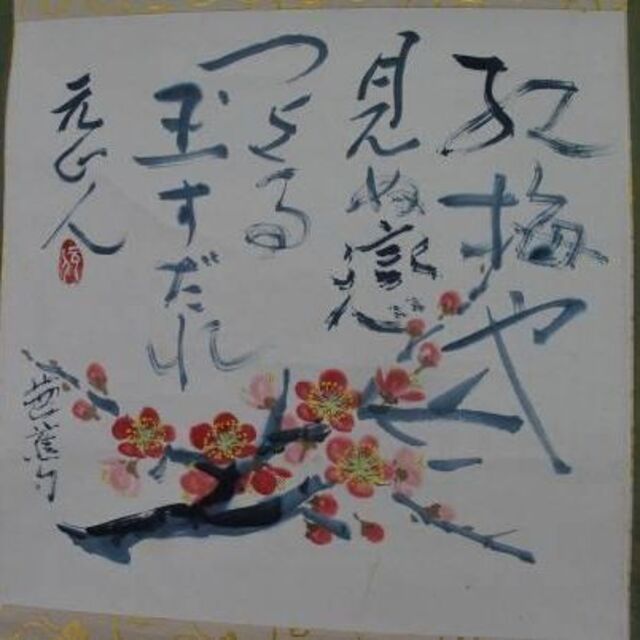 紅梅や
見ぬ戀
つくる
玉すだれ
元山人
芭蕉句